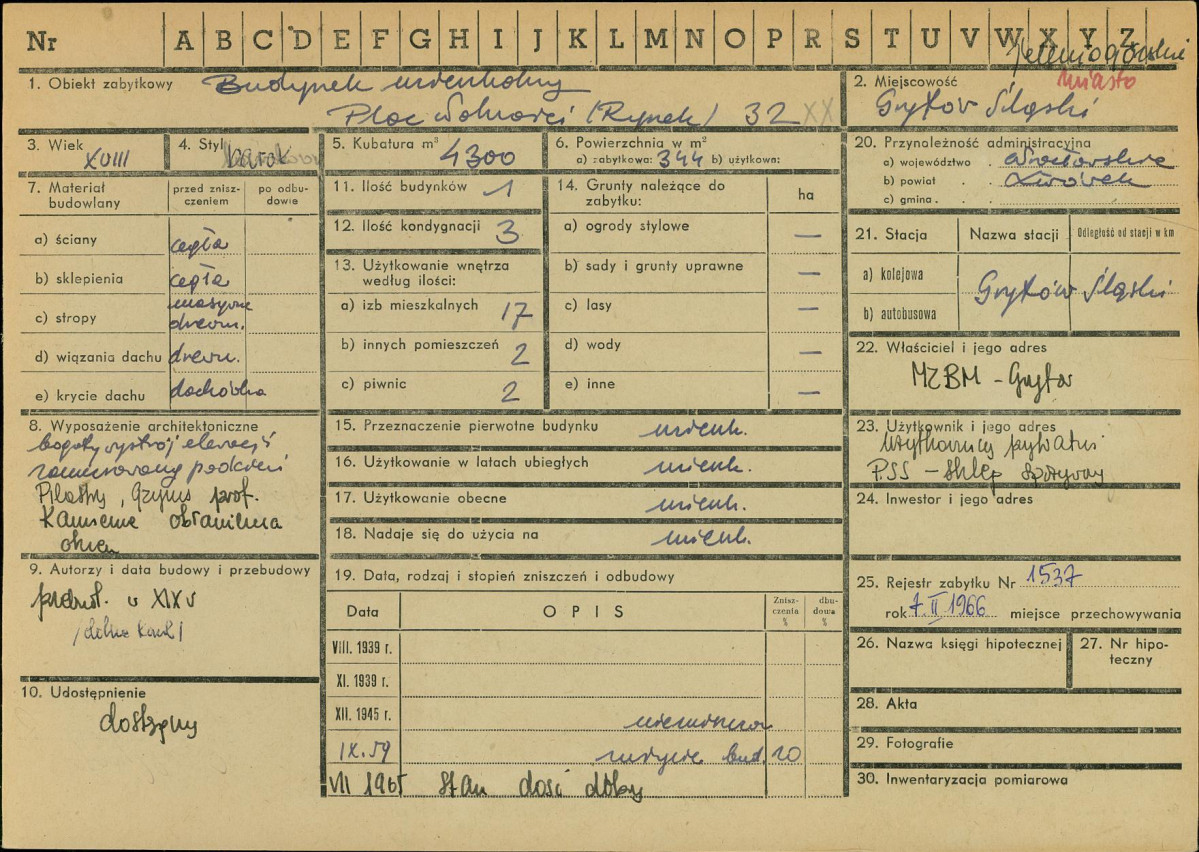 Nr A B C D E F G H I J K L M N O P R S T U V W X Y Z
Jeleniogórskie
miasto
1. Obiekt zabytkowy Budynek mieszkalny
Plac Wolności (Rynek) 32 XX
2. Miejscowość
Gryfów Śląski
3. Wiek
XVIII
4. Styl barok
5. Kubatura m³ 4300
6. Powierzchnia w m²
a) zabytkowa: 344 b) użytkowa:
7. Materiał budowlany
przed zniszczeniem
po odbudowie
a) ściany cegła
b) sklepienia cegła
c) stropy masywne
drewn.
d) wiązania dachu drewn.
e) krycie dachu dachówka
8. Wyposażenie architektoniczne
bogaty wystrój elewacji
zamurowany podcień
Pilastry, gzyms prof.
Kamienne obramienia
okien
9. Autorzy i data budowy i przebudowy
przebud. w XIX w
10. Udostępnienie
dostępny
11. Ilość budynków 1
12. Ilość kondygnacji 3
13. Użytkowanie wnętrza
według ilości:
a) izb mieszkalnych 17
b) innych pomieszczeń 2
c) piwnic 2
14. Grunty należące do
zabytku:
ha
a) ogrody stylowe —
b) sady i grunty uprawne —
c) lasy —
d) wody —
e) inne —
15. Przeznaczenie pierwotne budynku mieszk.
16. Użytkowanie w latach ubiegłych mieszk.
17. Użytkowanie obecne mieszk.
18. Nadaje się do użycia na mieszk.
19. Data, rodzaj i stopień zniszczeń i odbudowy
Data OPIS Zniszczenia % dbudowa %
VIII. 1939 r.
XI. 1939 r.
XII. 1945 r.
IX.59 zużycie bud. 20
VII 1965 stan dość dobry
20. Przynależność administracyjna
a) województwo wrocławskie
b) powiat Lwówek
c) gmina
21. Stacja Nazwa stacji Odległość od stacji w km
a) kolejowa
Gryfów Śląski
b) autobusowa
22. Właściciel i jego adres
MZBM – Gryfów
23. Użytkownik i jego adres
Użytkownicy prywatni
PSS – sklep spożywczy
24. Inwestor i jego adres
25. Rejestr zabytku Nr 1537
rok 7.II.1966 miejsce przechowywania
26. Nazwa księgi hipotecznej
27. Nr hipoteczny
28. Akta
29. Fotografie
30. Inwentaryzacja pomiarowa